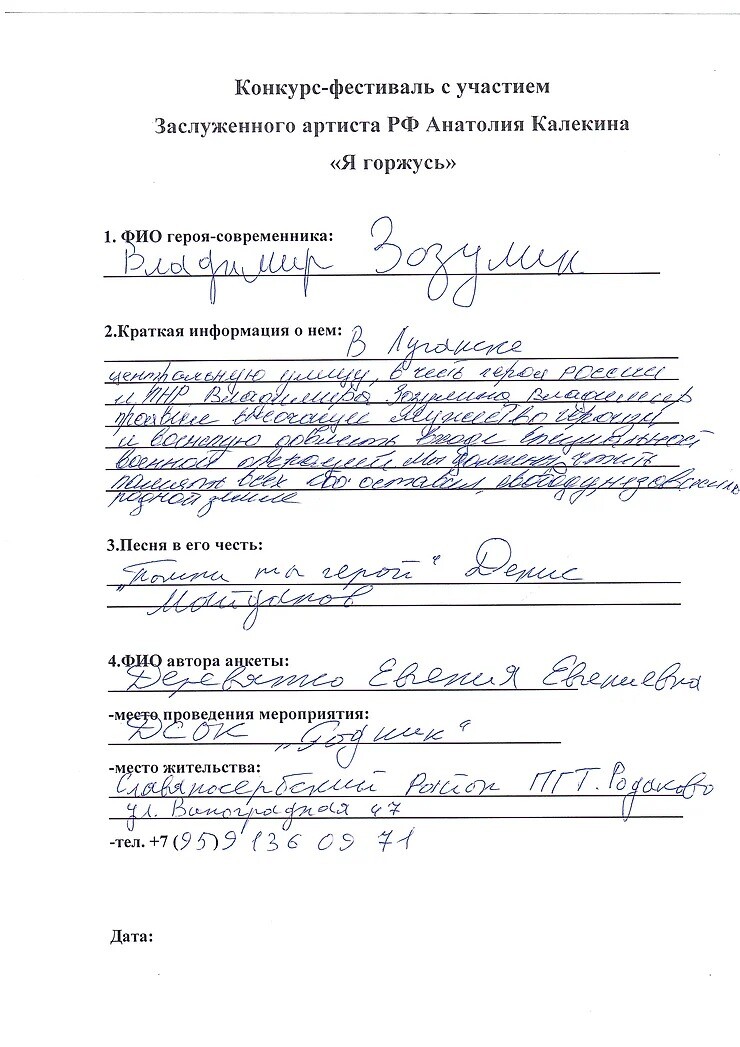 Конкурс-фестиваль с участием
Заслуженного артиста РФ Анатолия Калекина
«Я горжусь»
1. ФИО героя-современника:
Владимир Зозулин
2.Краткая информация о нем:
В Луганске
центральную улицу, в честь героя России
и ЛНР Владимира Зозулина Владимир
проявил мужество героизм
и воинскую доблесть в ходе специальной
военной операции, мы должны чтить
память всех кто оставил свободу,
родной земле
3.Песня в его честь:
„Помни ты герой“ Денис
Майданов
4.ФИО автора анкеты:
Деревянко Евгения Евгениевна
-место проведения мероприятия:
ДСОК „Родник“
-место жительства:
Славяносербский Район ПГТ. Родаково
ул. Виноградная 47
-тел. +7 (95)9 136 09 71
Дата: